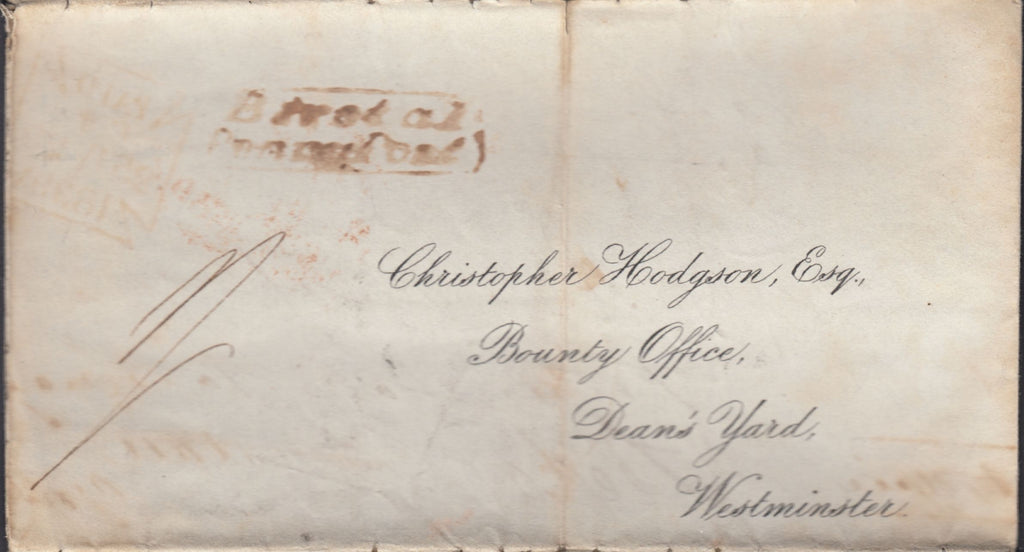 Bristol
Penny Post
Christopher Hodgson, Esq.,
Bounty Office,
Dean's Yard,
Westminster.